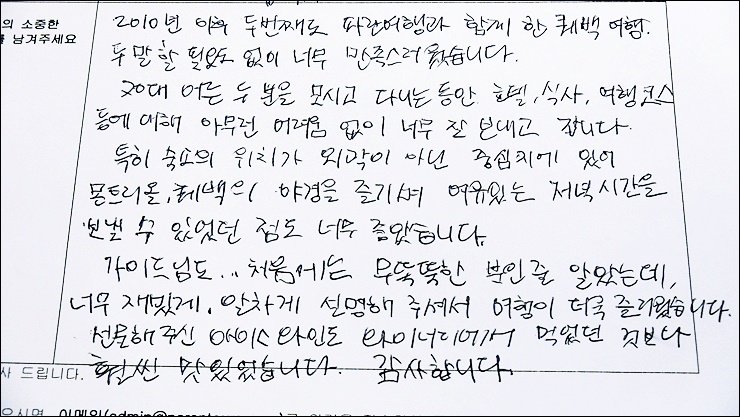 의 소중한
남겨주세요
2010년 이후 두번째로 파란여행과 함께 한 퀘백 여행.
두 말 할 필요도 없이 너무 만족스러웠습니다.
70대 어른 두 분을 모시고 다니는 동안 호텔, 식사, 여행코스
등에 대해 아무런 어려움 없이 너무 잘 보내고 갑니다.
특히 숙소의 위치가 외곽이 아닌 중심지에 있어
몬트리올, 퀘백의 야경을 즐기며 여유있는 저녁시간을
보낼 수 있었던 점도 너무 좋았습니다.
가이드님도.. 처음에는 무뚝뚝한 분인줄 알았는데,
너무 재밌게, 알차게 설명해 주셔서 여행이 더욱 즐거웠습니다.
선물해주신 아이스 와인도 와이너리에서 먹었던 것보다
훨씬 맛있었습니다. 감사합니다.
사 드립니다.
으시면 이메일